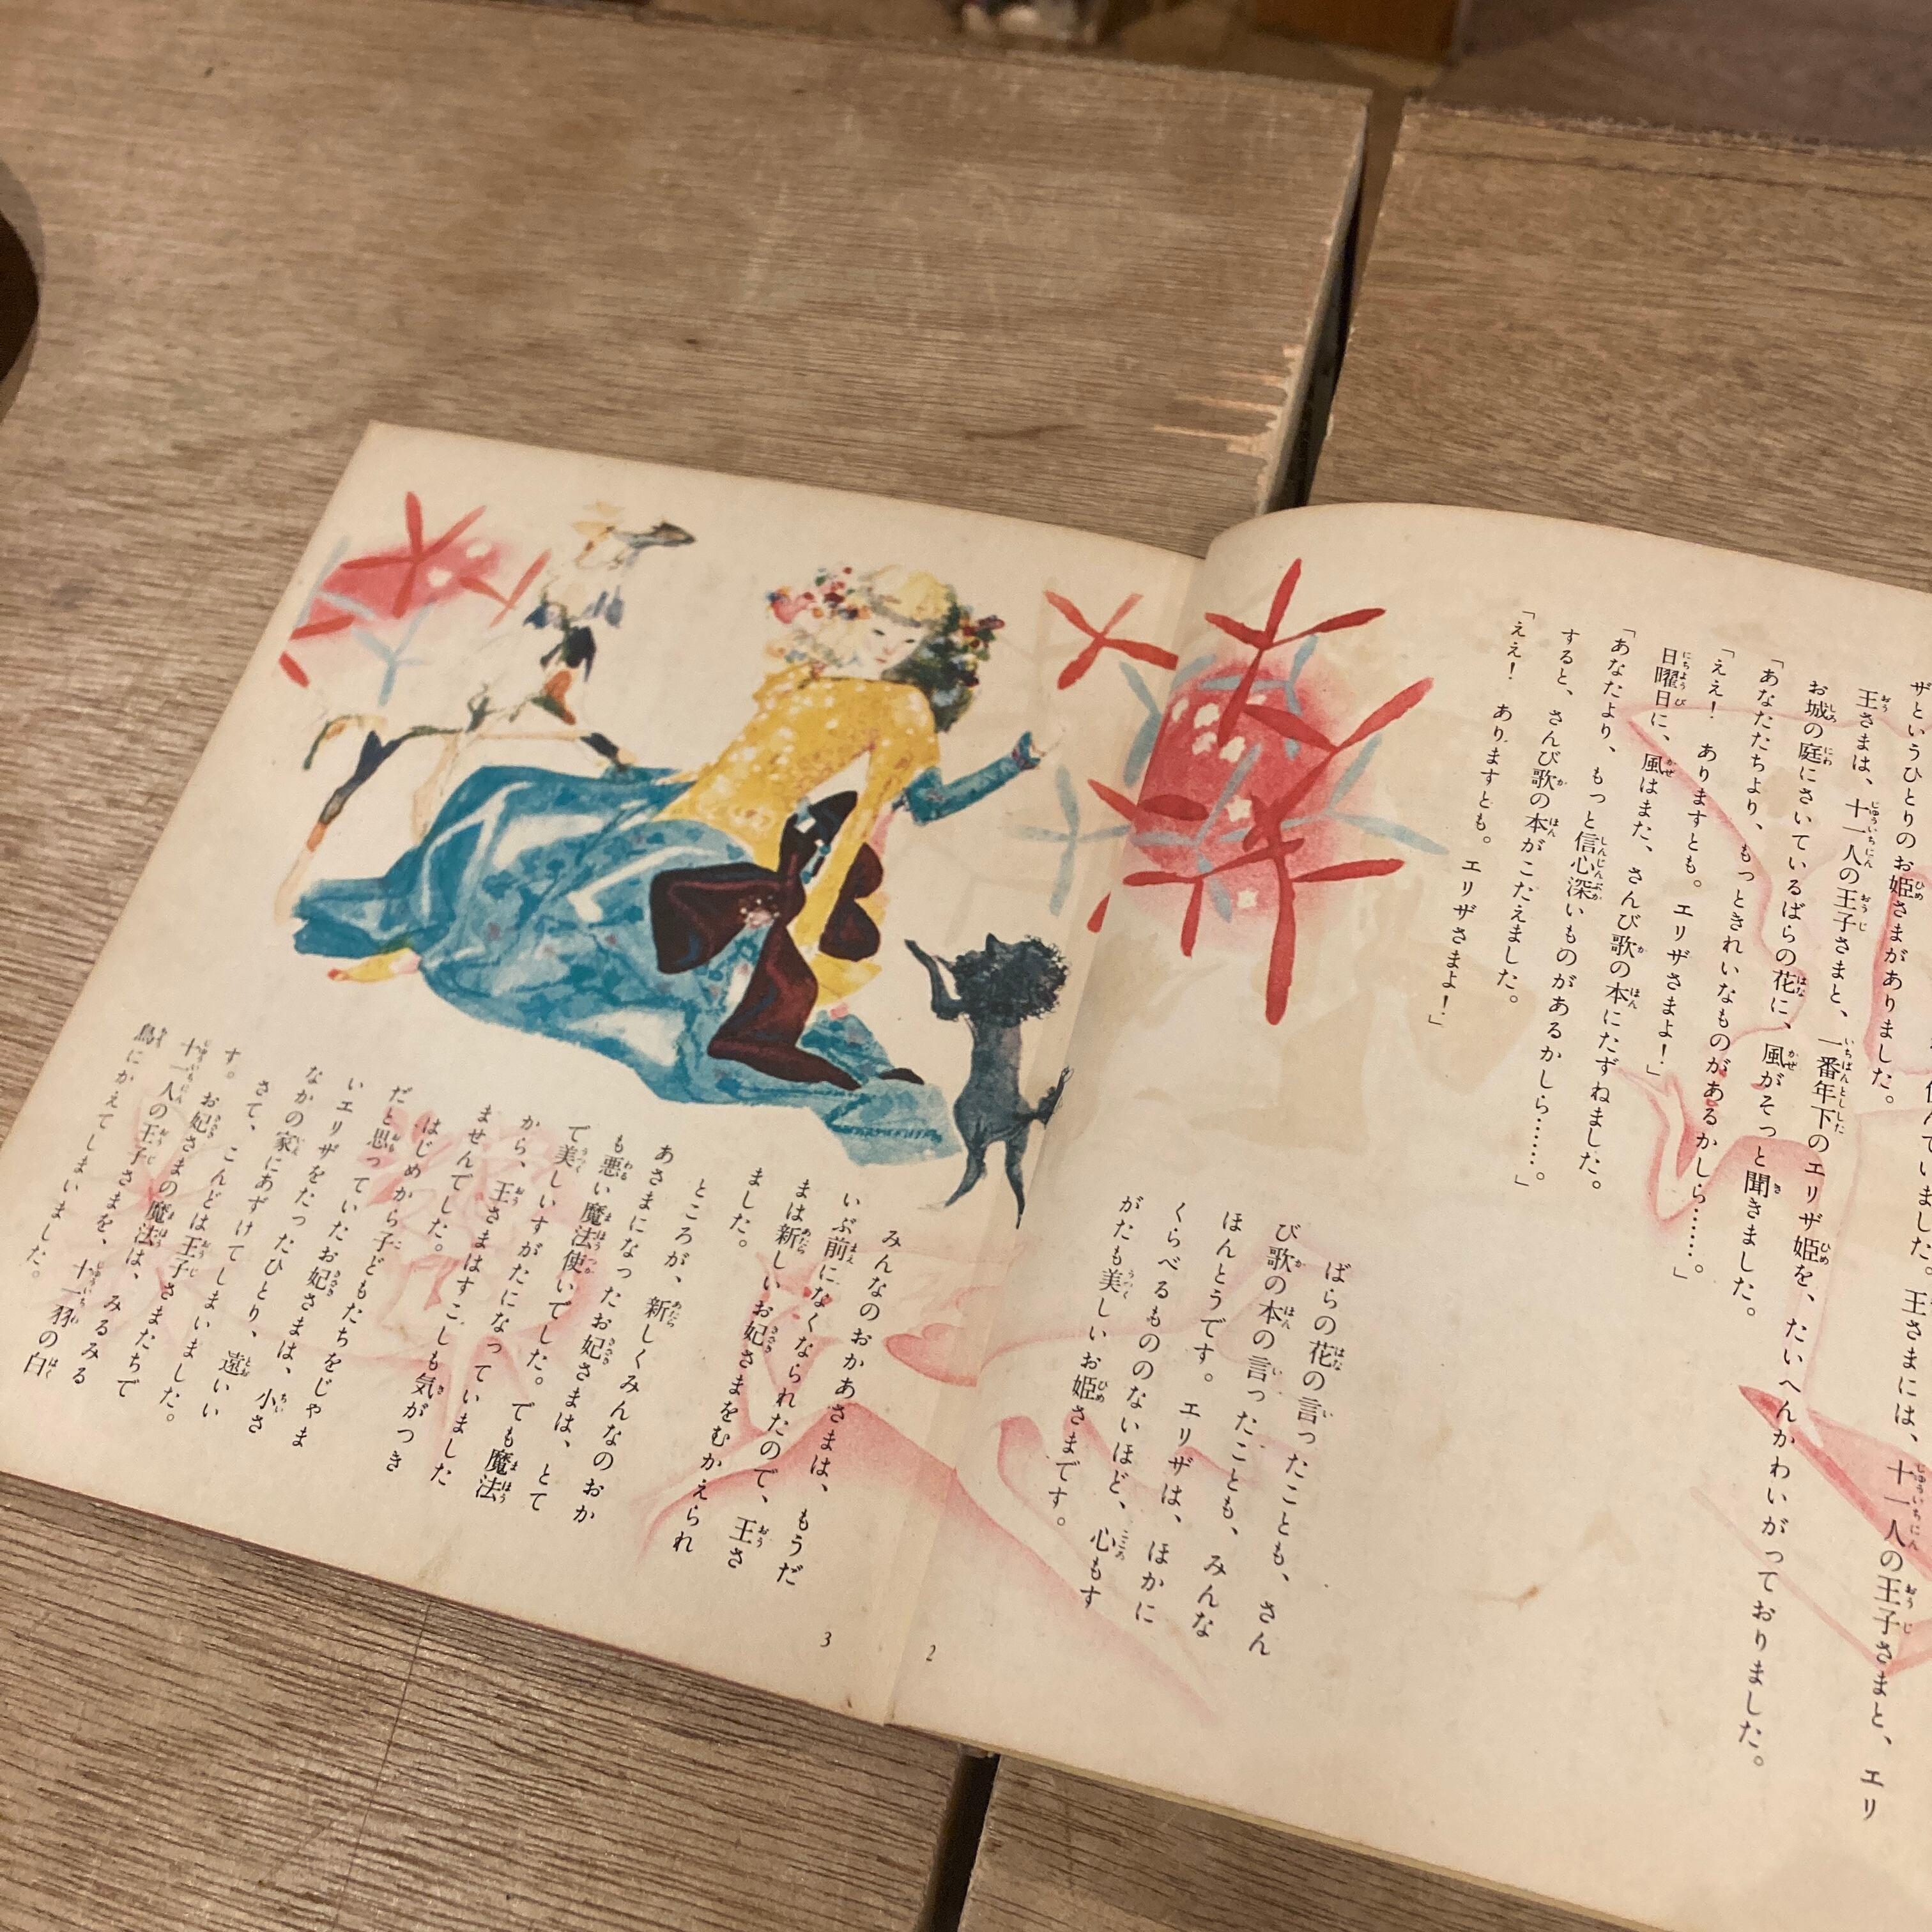 住んでいました。王さまには、十一人の王子さまと、エリ
ザというひとりのお姫さまがありました。
王さまは、十一人の王子さまと、一番年下のエリザ姫を、たいへんかわいがっておりました。
お城の庭にさいているばらの花に、風がそっと聞きました。
「あなたたちより、もっときれいなものがあるかしら……。」
「ええ！　ありますとも。エリザさまよ！」
日曜日に、風はまた、さんび歌の本にたずねました。
「あなたより、もっと信心深いものがあるかしら……。」
すると、さんび歌の本がこたえました。
「ええ！　ありますとも。エリザさまよ！」
ばらの花の言ったことも、さん
び歌の本の言ったことも、みんな
ほんとうです。エリザは、ほかに
くらべるもののないほど、心もす
がたも美しいお姫さまです。
2
みんなのおかあさまは、もうだ
いぶ前になくなられたので、王さ
まは新しいお妃さまをむかえられ
ました。
ところが、新しくみんなのおか
あさまになったお妃さまは、とて
も悪い魔法使いでした。でも魔法
で美しいすがたになっていました
から、王さまはすこしも気がつき
ませんでした。
はじめから子どもたちをじゃま
だと思っていたお妃さまは、小さ
いエリザをたったひとり、遠いい
なかの家にあずけてしまいました。
さて、こんどは王子さまたちで
す。お妃さまの魔法は、みるみる
十一人の王子さまを、十一羽の白
鳥にかえてしまいました。
3